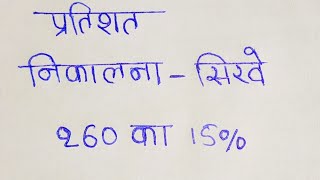 प्रतिशत
निकालना - सिखे
२60 का 15%